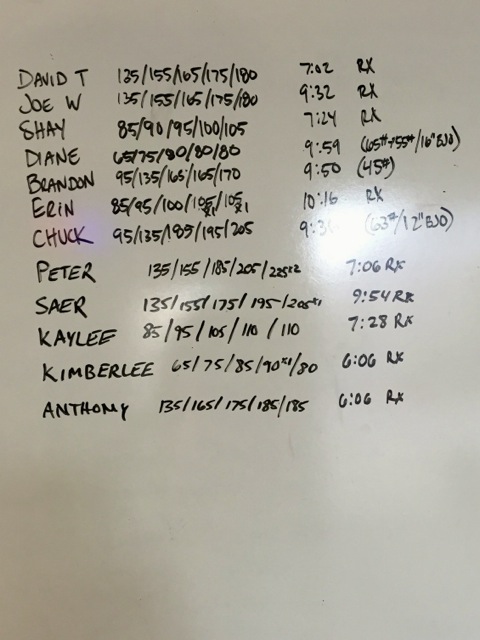 DAVID T 135/155/165/175/180 7:02 RX
JOE W 135/155/165/175/180 9:32 RX
SHAY 85/90/95/100/105 7:24 RX
DIANE 65/75/80/80/80 9:59 (65#→55#/16"EJO)
BRANDON 95/135/165/165/170 9:50 (45#)
ERIN 85/95/100/105x1/105x1 10:16 RX
CHUCK 95/135/185/195/205 (63#/12"EJO)
PETER 135/155/185/205/225x2 7:06 RX
SAER 135/155/175/195/205x1 9:54 RX
KAYLEE 85/95/105/110/110 7:28 RX
KIMBERLEE 65/75/85/90x1/80 6:06 RX
ANTHONY 135/165/175/185/185 6:06 RX